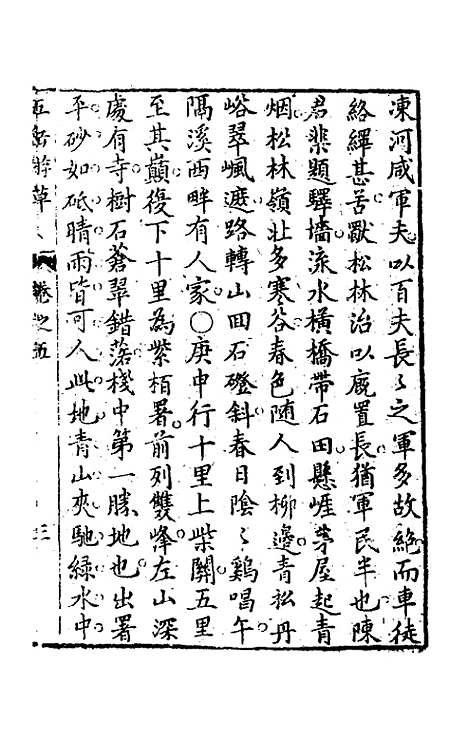 凍河咸軍夫以百夫長〻之軍多故絶而車徒
絡繹甚苦獸松林治以廐置長猶軍民半也陳
君棐題驛墻流水橫橋帶石田懸崖茅屋起青
烟松林嶺壯多寒谷春色隨人到柳邊青松丹
峪翠颯遮路轉山囬石磴斜春日陰〻鷄唱午
隔溪西畔有人家〇庚申行十里上柴關五里
至其巔復下十里為紫栢署前列雙峰左山深
處有寺樹石蒼翠錯落棧中第一勝地也出署
平砂如砥晴雨皆可人此地青山夾馳緑水中
五岳游草 卷之五 三